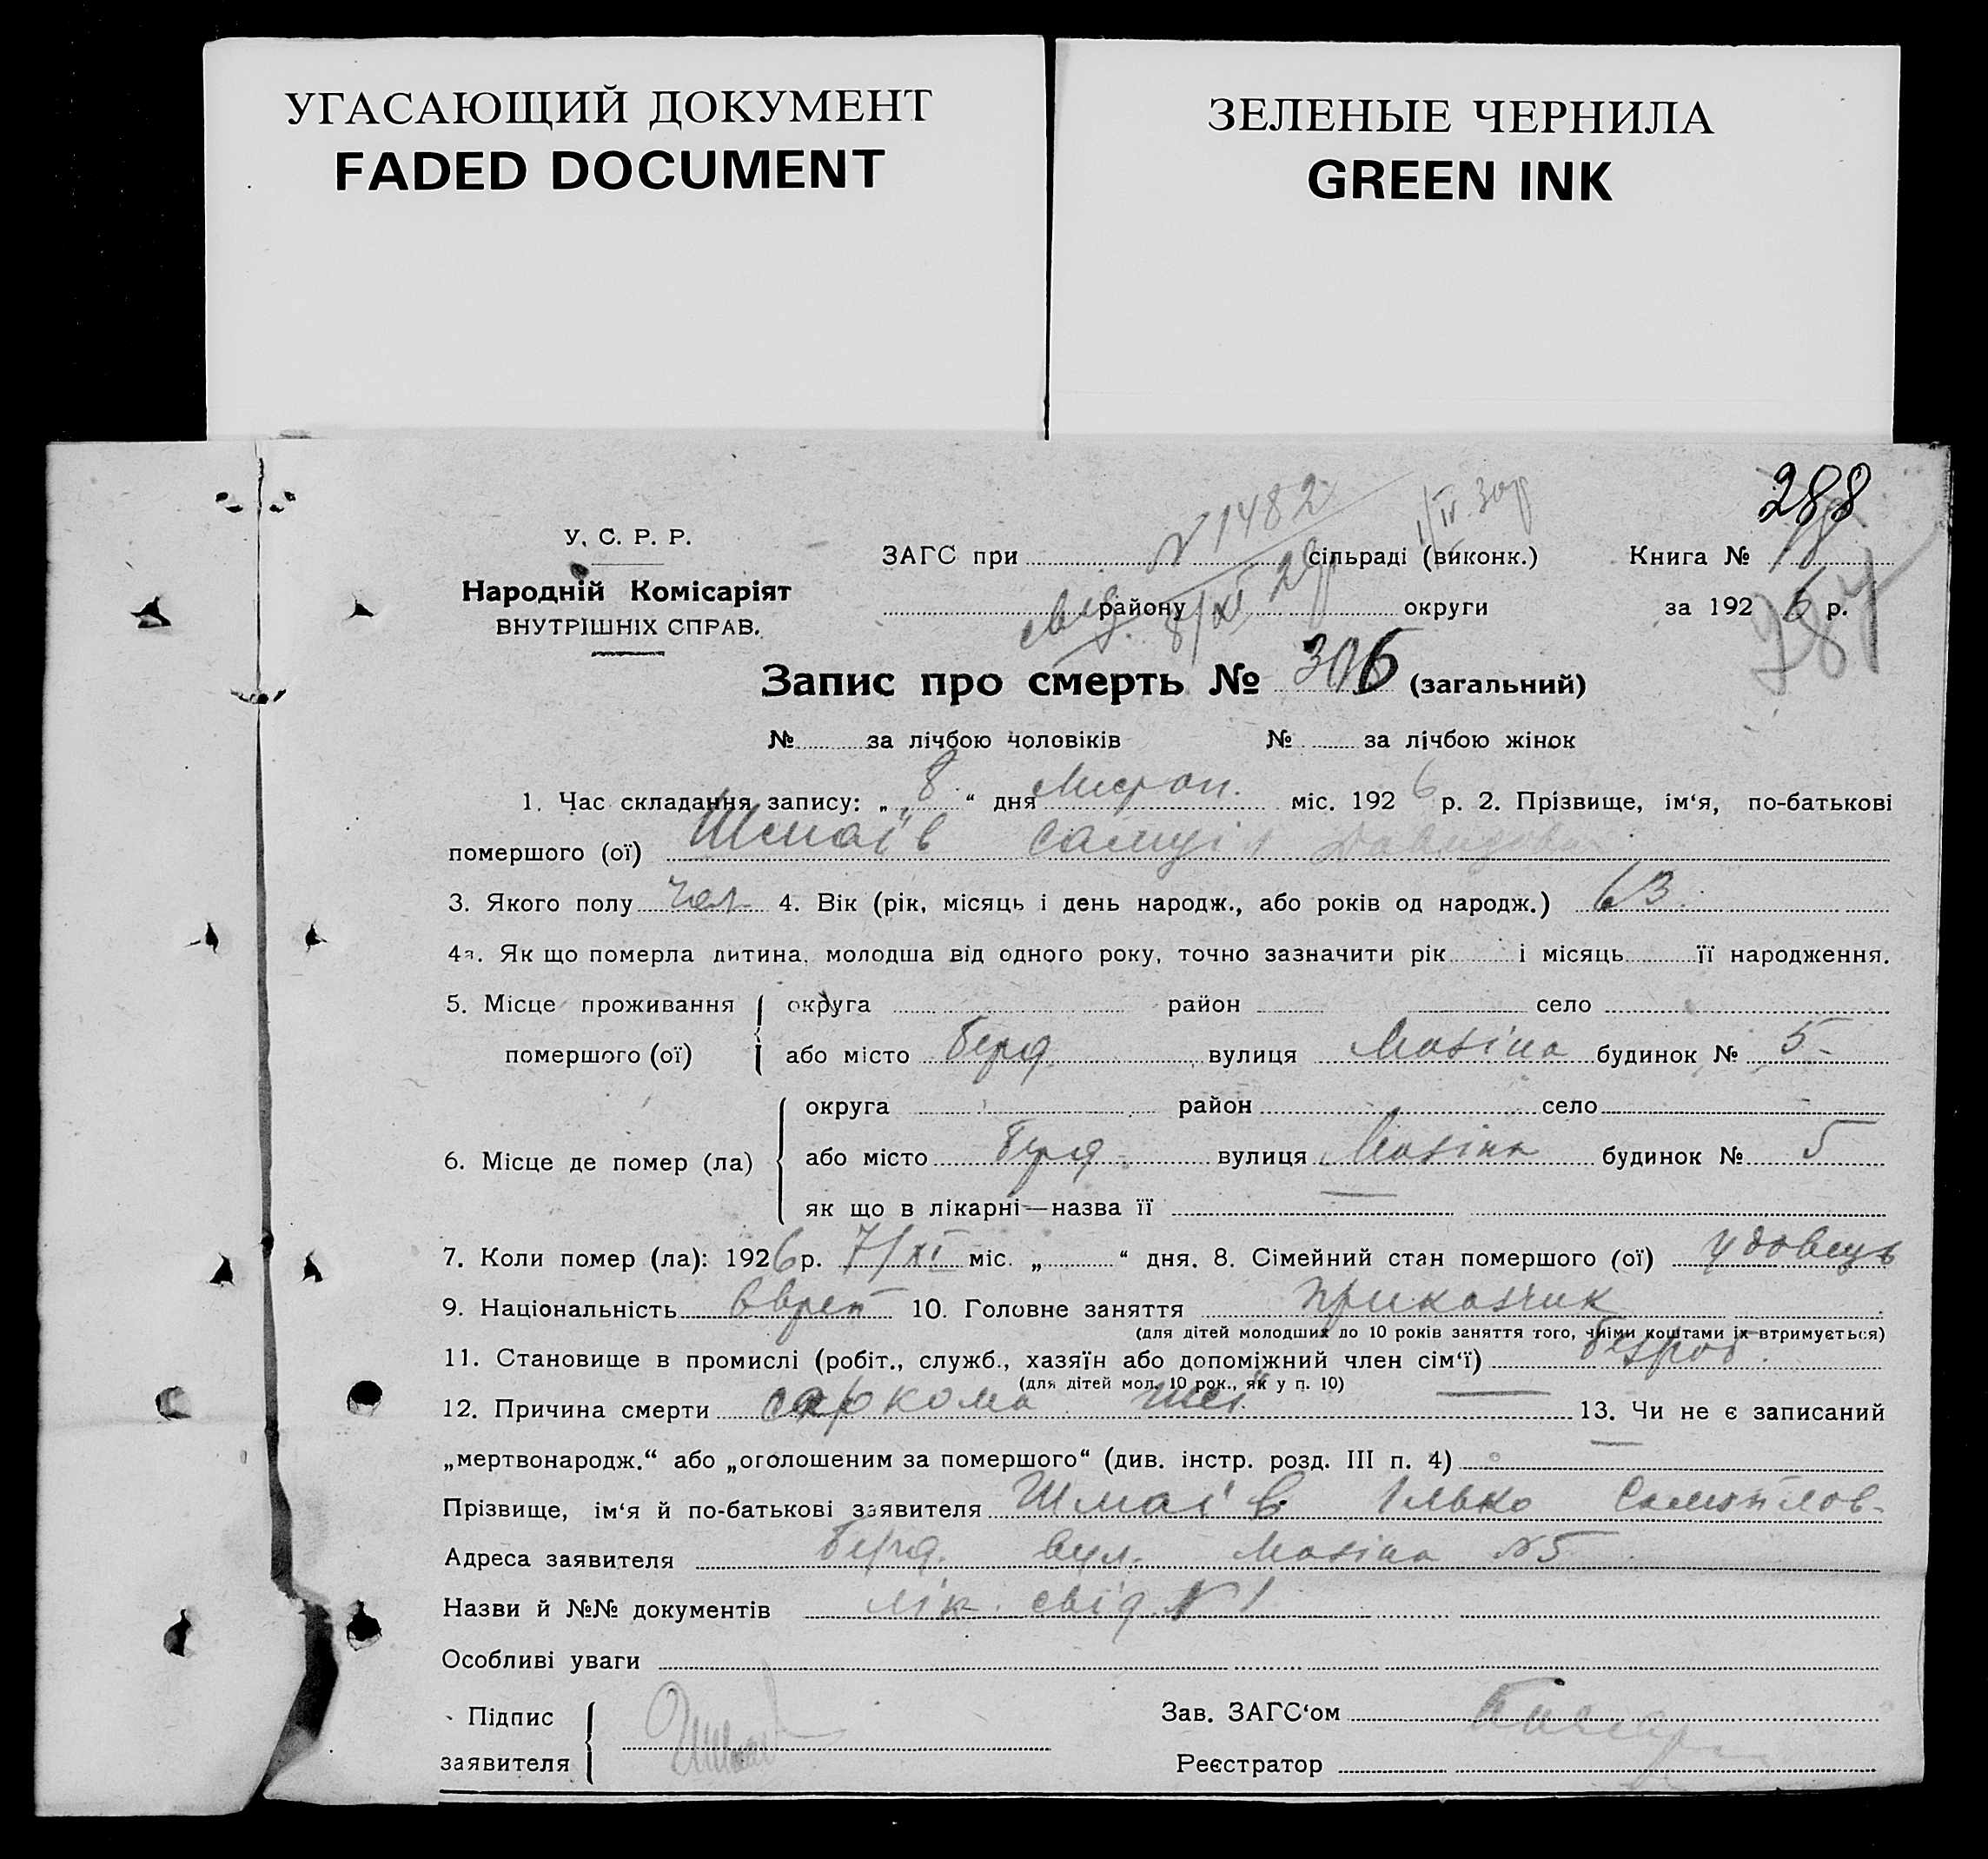 УГАСАЮЩИЙ ДОКУМЕНТ
FADED DOCUMENT
ЗЕЛЕНЫЕ ЧЕРНИЛА
GREEN INK
288
287
У. С. Р. Р.
Народній Комісаріят
ВНУТРІШНІХ СПРАВ.
N 1482
ЗАГС при сільраді (виконк.) Книга № 18
району округи за 1926 р.
свід. 8/XI 29р
Запис про смерть № 306 (загальний)
№ за лічбою чоловіків № за лічбою жінок
1. Час складання запису: „8“ дня Листоп. міс. 1926 р. 2. Прізвище, ім‘я, по-батькові
помершого (ої) Шмаїв Самуіл Давидович
3. Якого полу чол. 4. Вік (рік, місяць і день народж., або років од народж.) 63.
4а. Як що померла дитина, молодша від одного року, точно зазначити рік і місяць її народження.
5. Місце проживання округа район село
помершого (ої) або місто Берд. вулиця Мазіна будинок № 5
округа район село
6. Місце де помер (ла) або місто Берд. вулиця Мазіна будинок № 5
як що в лікарні—назва її —
7. Коли помер (ла): 1926 р. 7/XI міс. „ “ дня. 8. Сімейний стан помершого (ої) удовець
9. Національність еврей 10. Головне заняття приказчик
(для дітей молодших до 10 років заняття того, чиїми коштами їх втримується)
11. Становище в промислі (робіт., служб., хазяїн або допоміжний член сім‘ї) безроб.
(для дітей мол. 10 рок., як у п. 10)
12. Причина смерти саркома шиї — 13. Чи не є записаний
„мертвонародж.“ або „оголошеним за помершого“ (див. інстр. розд. III п. 4) —
Прізвище, ім‘я й по-батькові заявителя Шмаїв Ілько Самойлов.
Адреса заявителя Берд. вул. Мазіна №5
Назви й №№ документів лік. свід. N 1
Особливі уваги
Підпис
заявителя
Зав. ЗАГС‘ом
Реєстратор